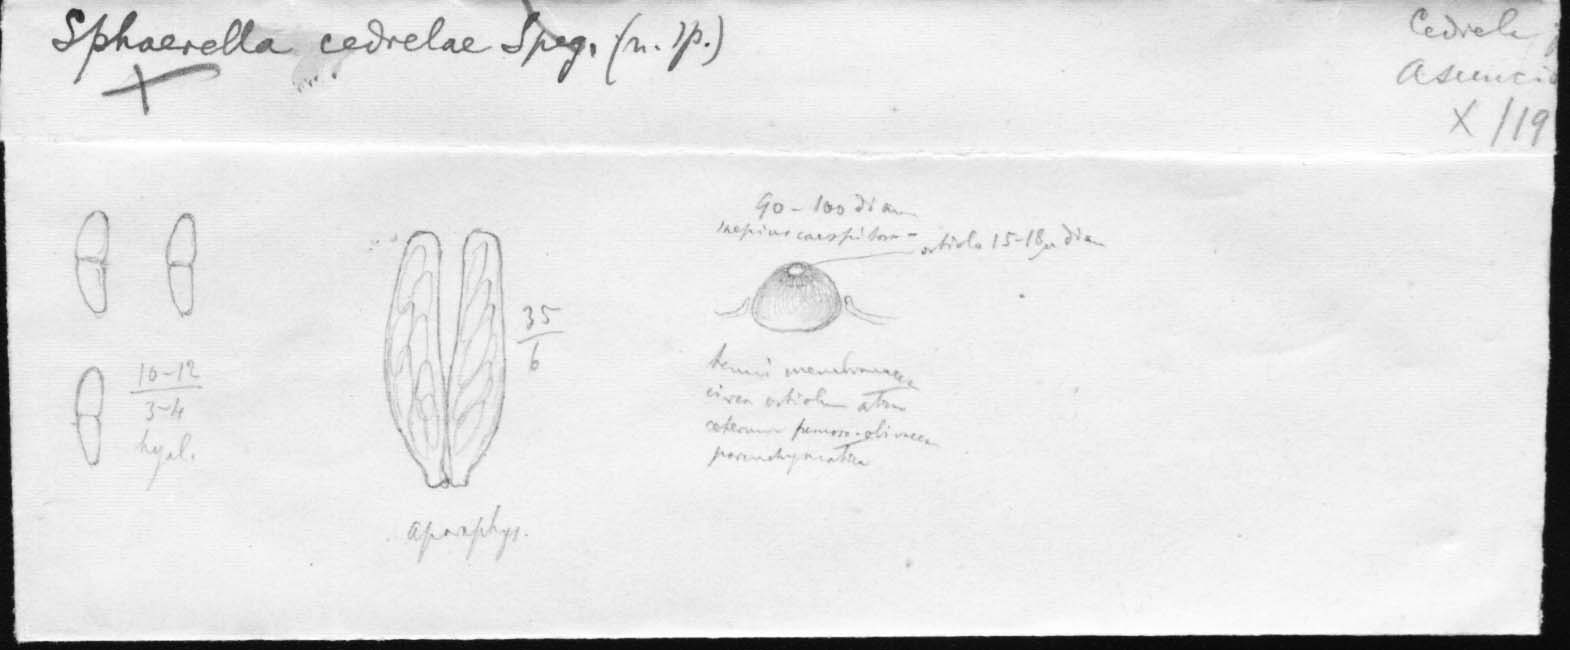 Sphaerella cedrelae Speg. (n. sp.)
Cedrela
Asunció
X/19
90-100 diam
saepius caespitosa -
ostiolo 15-18µ diam
35
6
10-12
3-4
hyal.
tenui membranacea
circa ostiolum atra
ceterum fumoso-olivacea
parenchymatica
aparaphys.